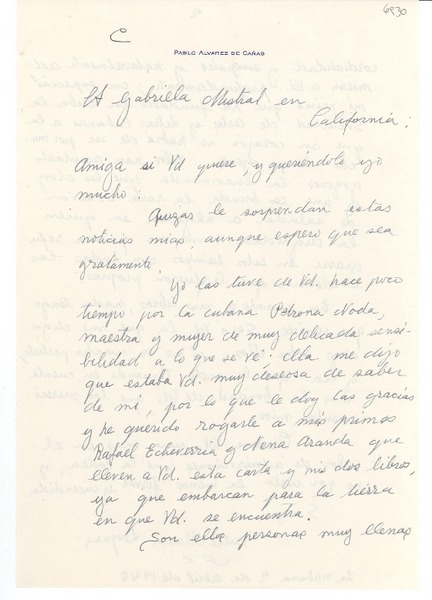 6930
C
PABLO ALVAREZ DE CAÑAS
A Gabriella Mistral en
California:
Amiga si Vd. quiere, y queriéndolo yo
mucho:
Quizas le sorprendan estas
noticias mias aunque espero que sea
gratamente.
Yo las tuve de Vd. hace poco
tiempo por la cubana Petrona Noda,
maestra y mujer de muy delicada sensi-
bilidad a lo que se ve; ella me dijo
que estaba Vd. muy deseosa de saber
de mi, por lo que le doy las gracias
y he querido rogarle a mis primos
Rafael Echeverria y Nena Aranda que
lleven a Vd. esta carta y mis dos libros,
ya que embarcan para la tierra
en que Vd. se encuentra.
Son ellos personas muy llenas